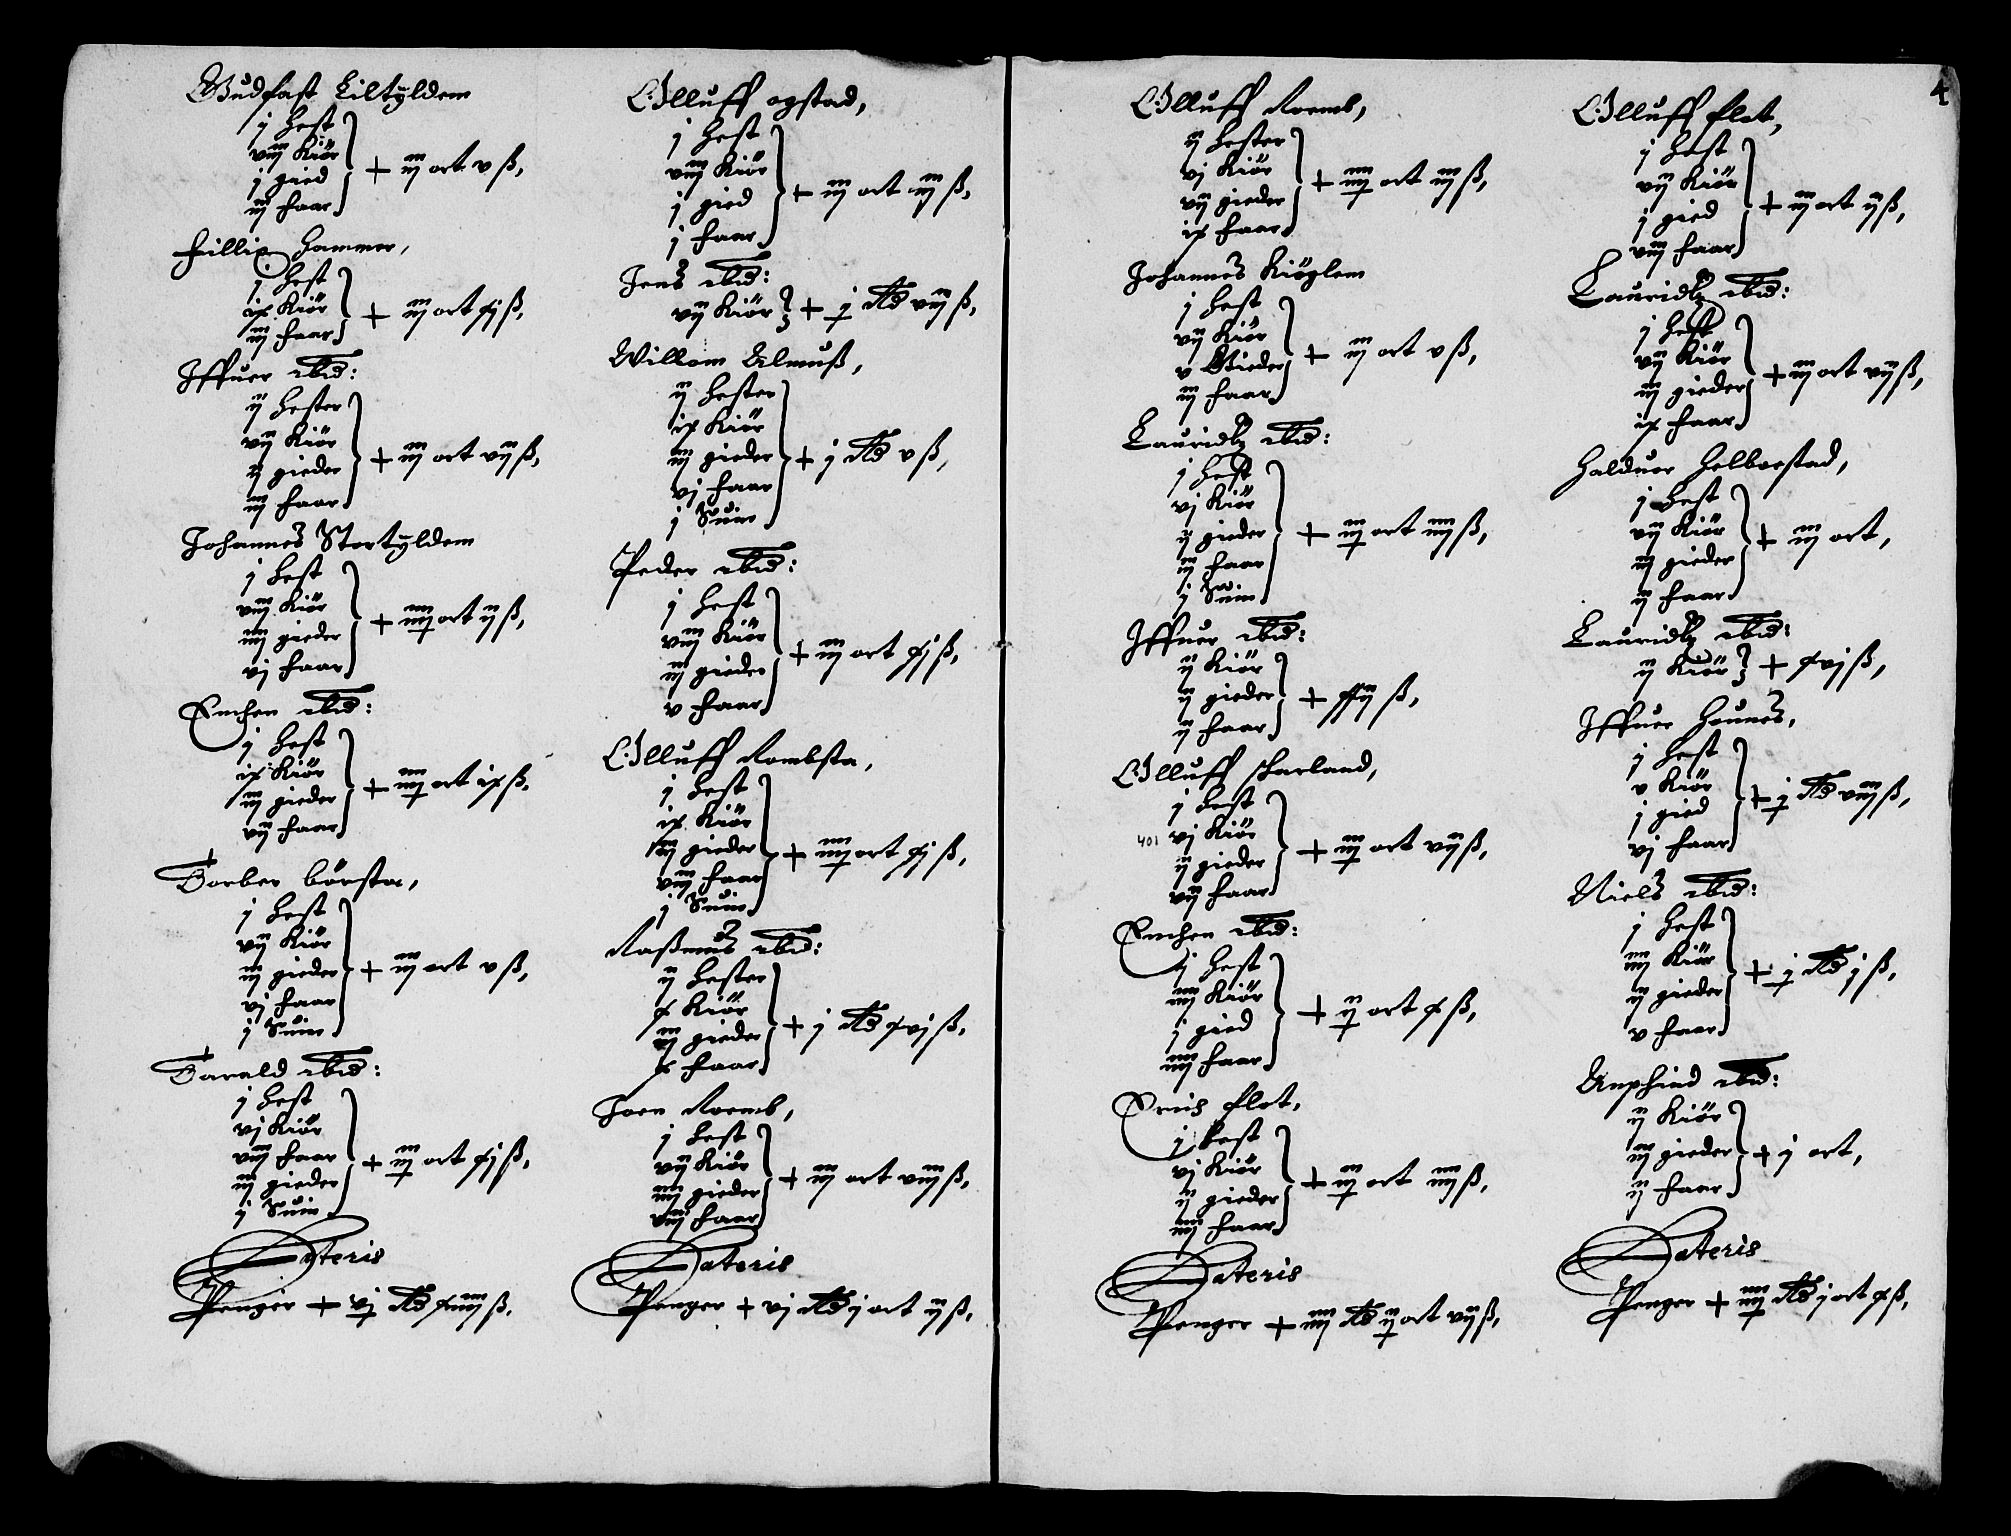 Gudfast Liltyldem
j hest
viij Kiör
j gied
iij faar
+ iij ort v ß,
fillip Hammer,
j hest
ix Kiör
iij faar
+ iij ort xj ß,
Iffuer ibid:
ij hester
vij Kiör
ij gieder
iij faar
+ iij ort vij ß,
Johannes Stortyldem
j hest
viij Kiör
iiij gieder
vj faar
+ iiij ort ij ß,
Erichen ibid:
j hest
ix Kiör
iij gieder
vij faar
+ iiij ort ix ß,
Torber börsta,
j hest
vij Kiör
iij gieder
vj faar
j Suin
+ iij ort v ß,
Harald ibid:
j hest
vj Kiör
viij faar
iij gieder
j Suin
+ iij ort xj ß,
Lateris
Penger + vj Rd xiiij ß.
Olluff ogstad,
j hest
viij Kiör
j gied
j faar
+ iij ort iij ß,
Jens ibid:
vij Kiör
+ j Rd viij ß,
Willom Almuß,
ij hester
ix Kiör
iij gieder
vj faar
j Suin
+ j Rd v ß,
Peder ibid:
j hest
viij Kiör
iij gieder
v faar
+ iij ort xj ß,
Olluff Rombsta,
j hest
ix Kiör
gieder
viij faar
j Suin
+ iiij ort xj ß,
Raßmus ibid:
ij hester
x Kiör
iij gieder
x faar
+ j Rd xvj ß,
Joen Roemb,
j hest
vij Kiör
iiij gieder
viij faar
+ iij ort viij ß,
Lateris
Penger + vj Rd j ort ij ß,
4
Olluff Roemb,
ij hester
vj Kiör
vij gieder
ix faar
+ iiij ort iij ß,
Johannes Kiöglem
j hest
vij Kiör
v Gieder
iij faar
+ iij ort v ß,
Lauridtz ibid:
j hest
vj Kiör
ij gieder
iij faar
j Suin
+ iij ort iiij ß,
Iffuer ibid:
ij Kiör
ij gieder
ij faar
+ xxij ß,
Olluff skarland,
j hest
401
vj Kiör
ij gieder
vij faar
+ iij ort vij ß,
Erichen ibid:
j hest
iiij Kiör
j gied
iiij faar
+ ij ort x ß,
Erich flot,
j hest
vj Kiör
ij gieder
iiij faar
+ iij ort iiij ß,
Lateris
Penger + iiij Rd ij ort vij ß,
Olluff flot,
j hest
vij Kiör
j gied
viij faar
+ iij ort ij ß,
Lauridtz ibid:
j hest
vij Kiör
iij gieder
ix faar
+ iij ort vij ß,
Halduor Helboestad,
j hest
vij Kiör
iij gieder
ij faar
+ iij ort,
Lauridtz ibid:
ij Kiör
+ xvj ß,
Iffuer Hounes,
j hest
v Kiör
j gied
vj faar
+ j Rd viij ß,
Niels ibid:
j hest
iiij Kiör
ij gieder
v faar
+ j Rd j ß,
Anphind ibid:
ij Kiör
iij gieder
ij faar
+ j ort,
Lateris
Penger + iiij Rd j ort x ß,